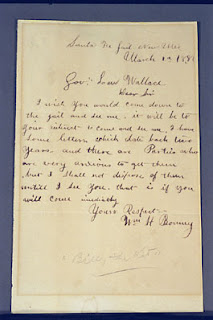 Santa Fe Jail New Mex
March 2d 1881
Gov. Lew Wallace
Dear Sir
I wish you would come down to
the jail and see me. it will be to
your interest to come and see me. I have
some letters which date back two
years and there are Parties who
are very anxious to get them
but I shall not dispose of them
untill I see you. that is if you
will come imediately
Yours Respect-
Wm H Bonney